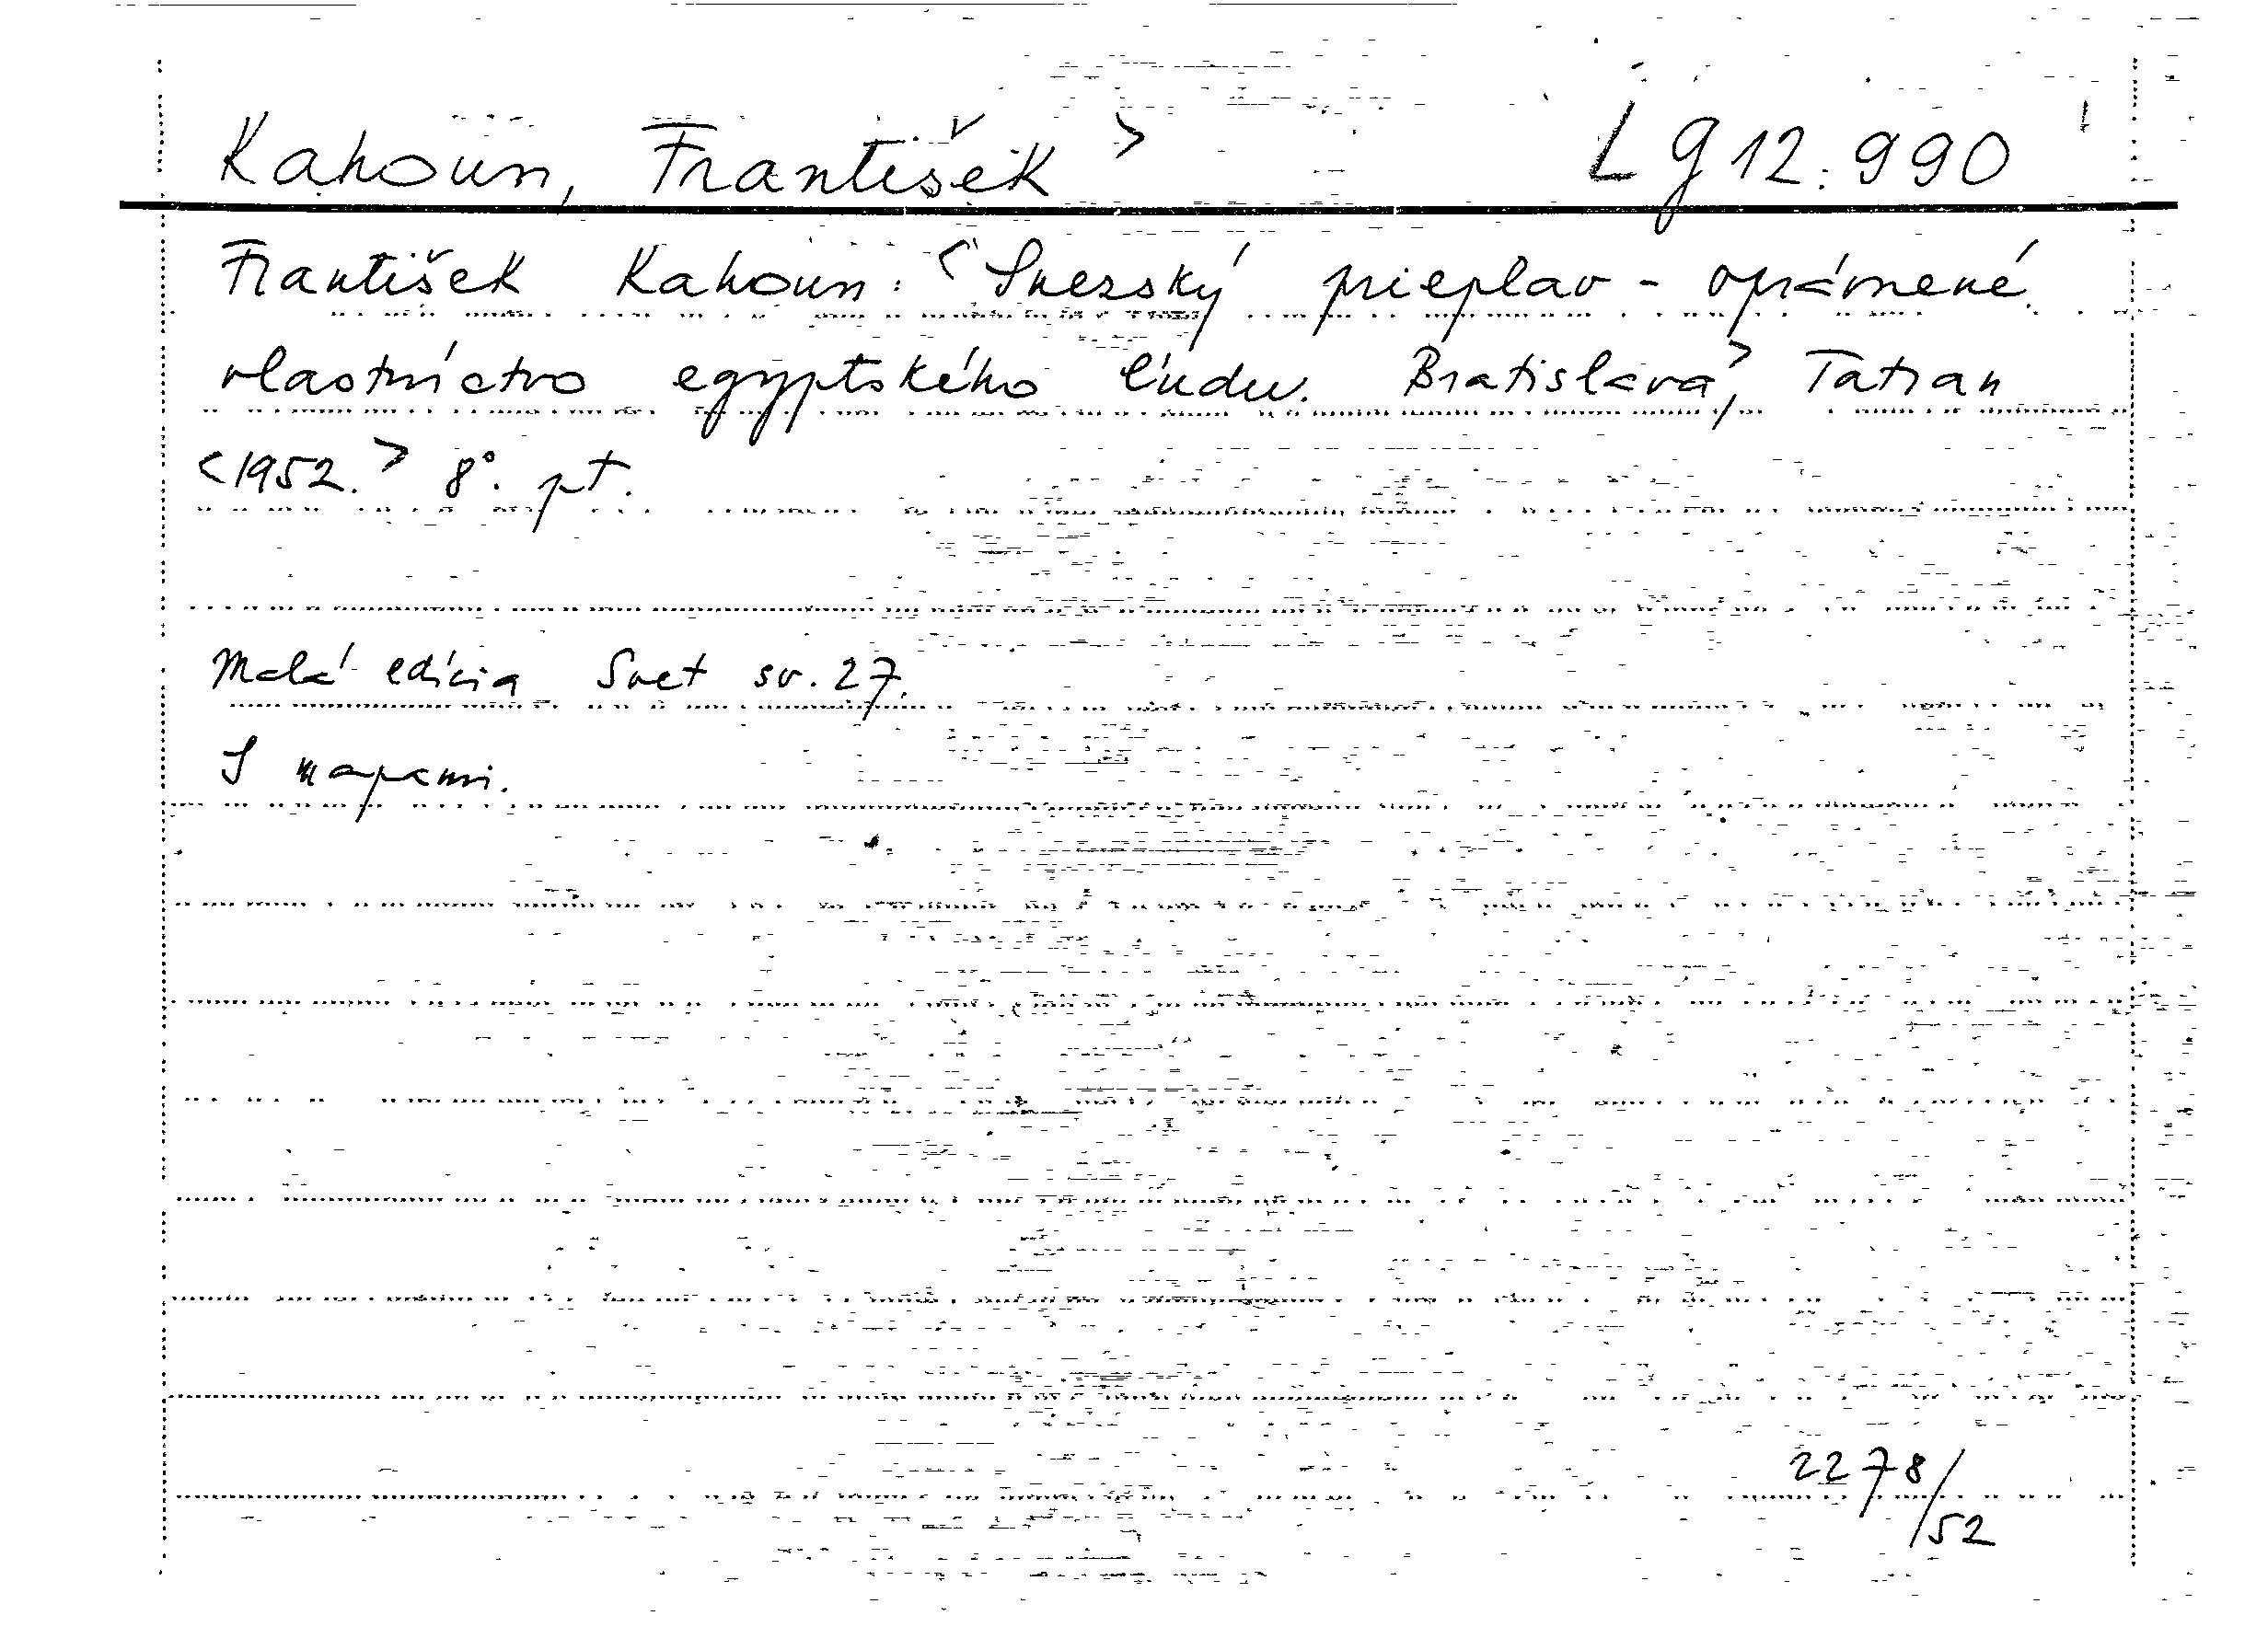 Kahoun, František > Lg 12.990
František Kahoun: < Suezský prieplav - oprávnené
vlastníctvo egyptského ľudu. Bratislava >, Tatran
<1952.> 8°. pt.
Malá edícia Svet sv. 27.
S mapami.
2278/52